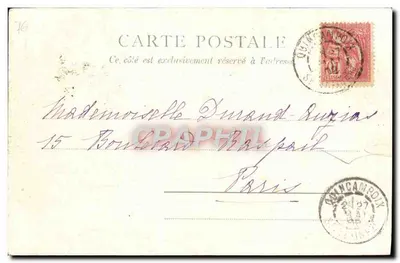 CARTE POSTALE
Ce côté est exclusivement réservé à l'adresse
QUINCAMPOIX
Mademoiselle Durand-Auzias
CPAPHIL
15 Boulevard Raspail
Paris
QUINCAMPOIX
27